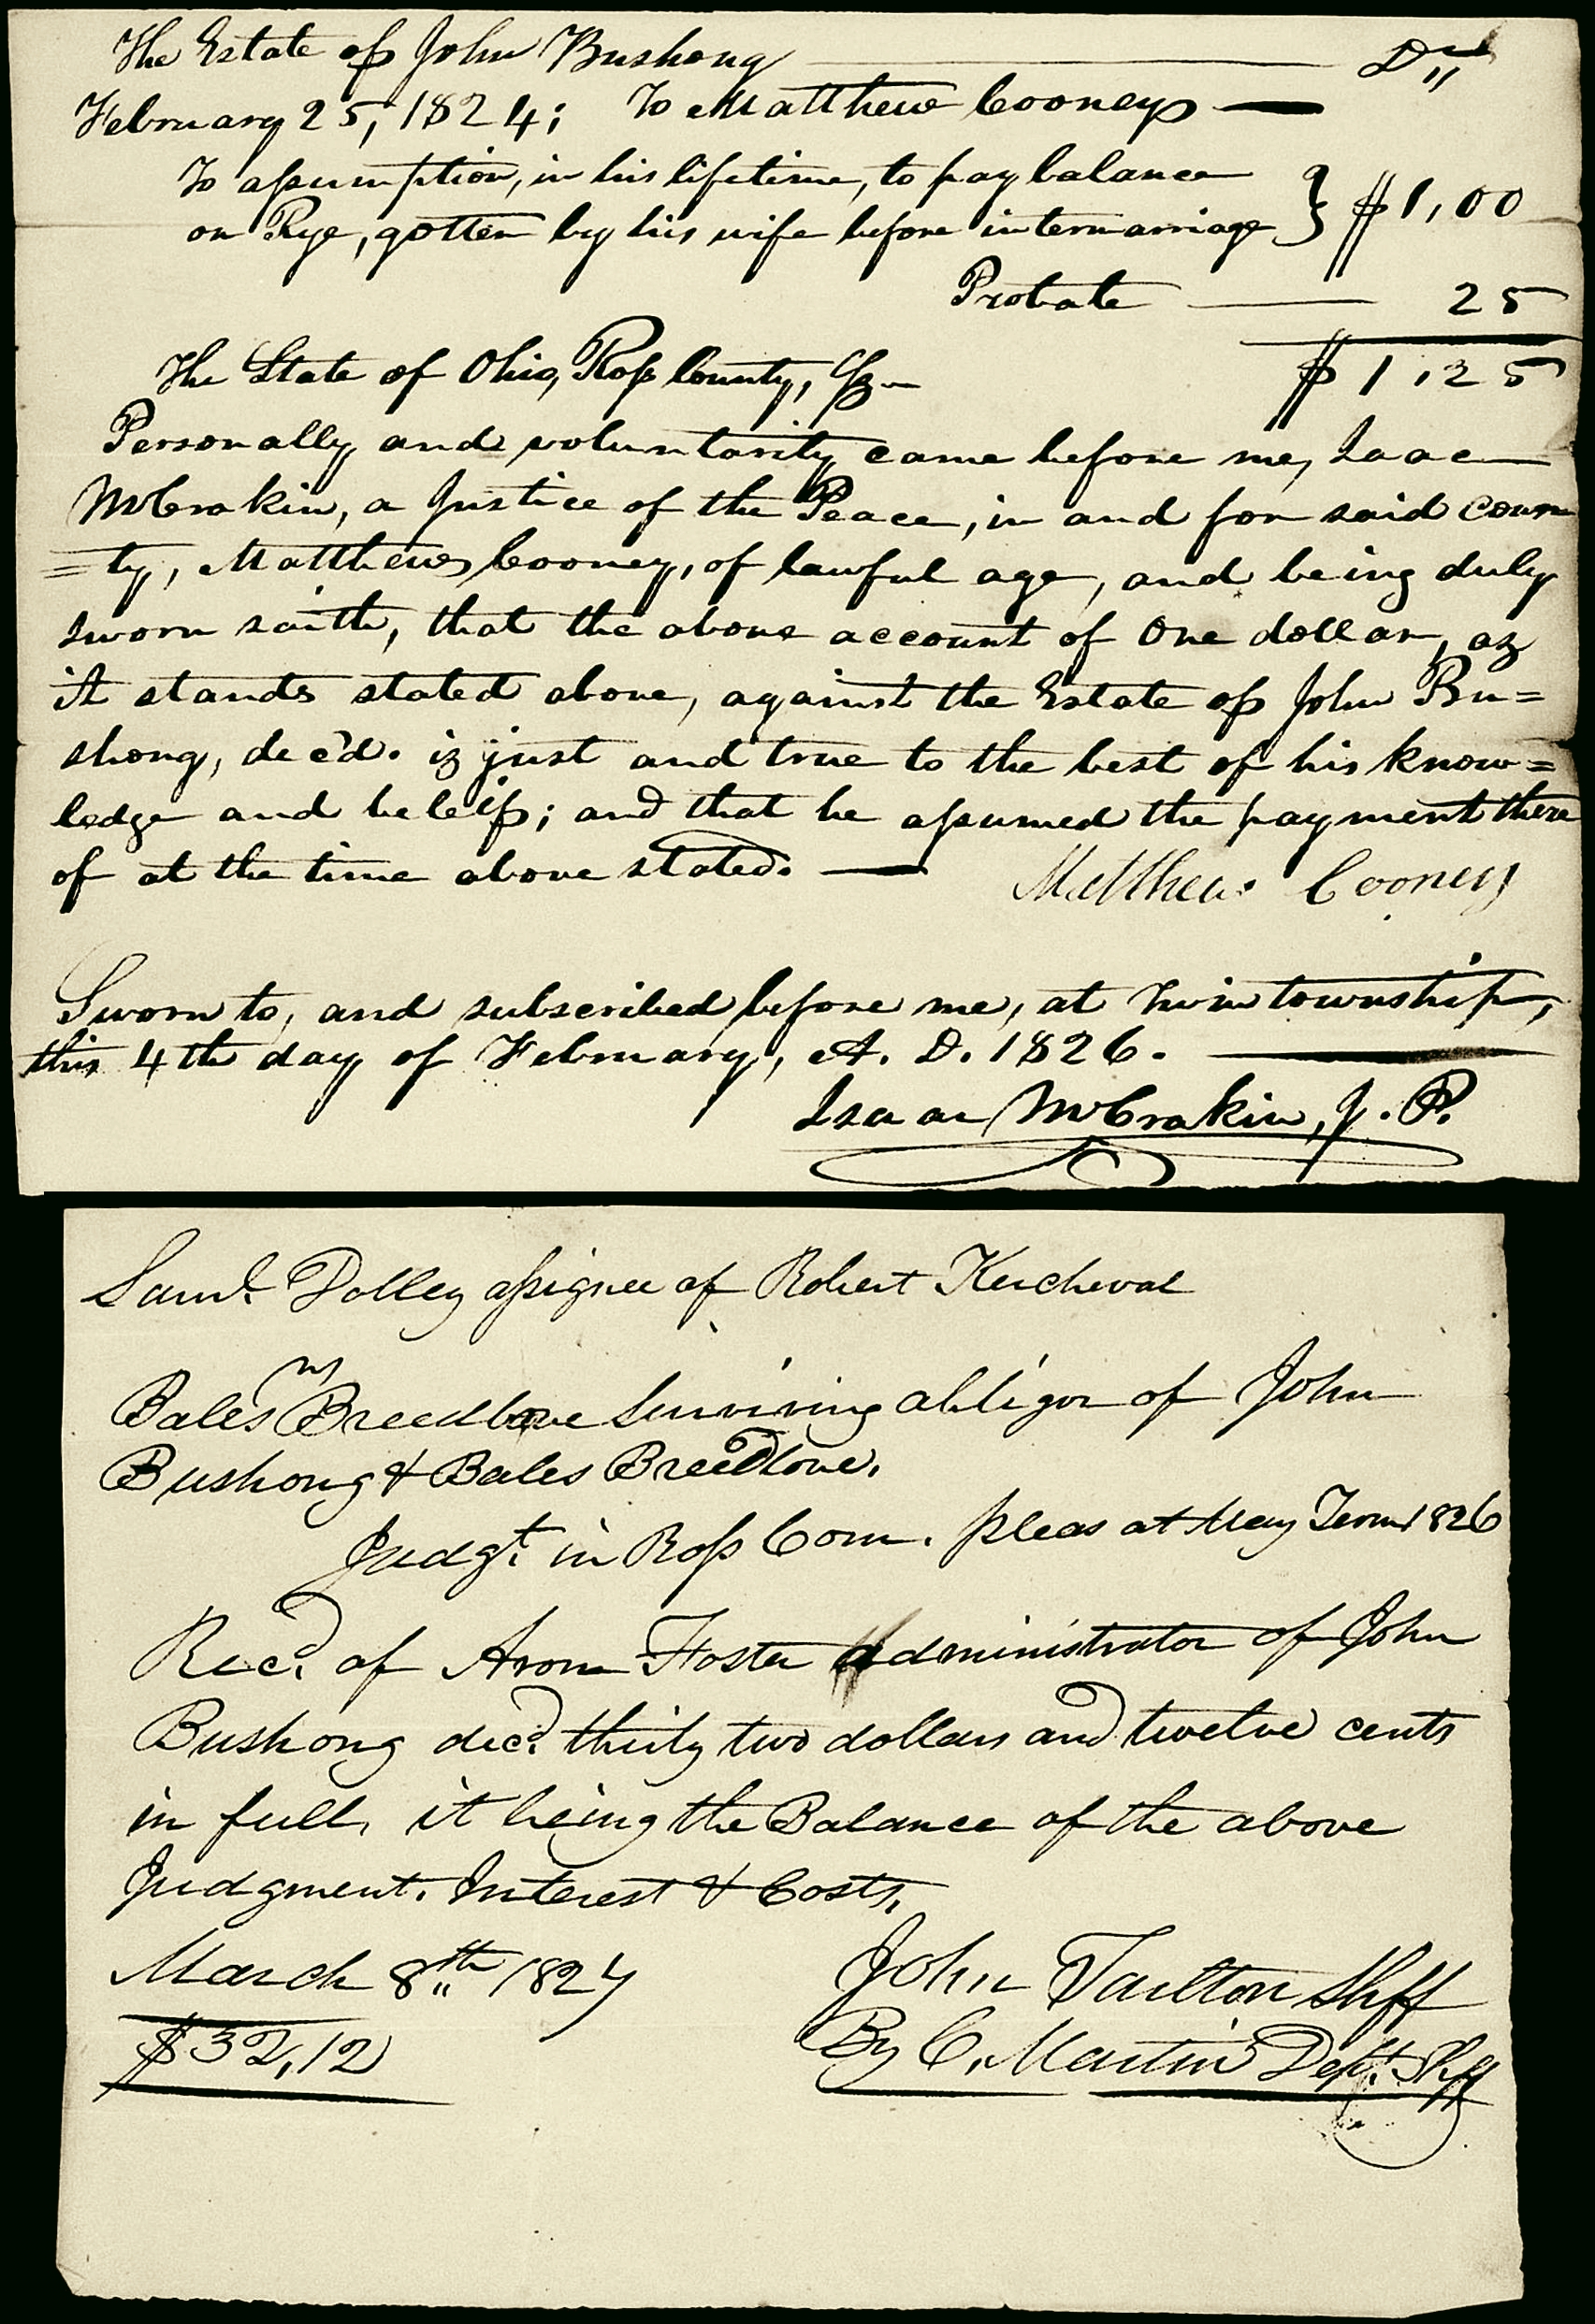 The Estate of John Bushong Dr
February 25, 1824; To Matthew Cooney
To assumption, in his lifetime, to pay balance
on Rye, gotten by his wife before intermarriage } $1,00
Probate 25
$1,25
The State of Ohio, Ross County, Ss
Personally and voluntarily came before me, Isaac
McCrakin, a Justice of the Peace, in and for said coun
=ty, Matthew Cooney, of lawful age, and being duly
sworn saith, that the above account of One dollar, as
it stands stated above, against the Estate of John Bu=
shong, dec'd. is just and true to the best of his know=
ledge and beleif; and that he assumed the payment there
of at the time above stated.
Matthew Cooney
Sworn to, and subscribed before me, at Twin township,
this 4th day of February, A. D. 1826.
Isaac McCrakin, J. P.
Saml. Dolley assignee of Robert Kercheval
vs
Bales Breedlove Surviving obligor of John
Bushong & Bales Breedlove.
Judgt. in Ross Com. pleas at May Term 1826
Recd. of Aron Foster administrator of John
Bushong decd. thirty two dollars and twelve cents
in full, it being the Balance of the above
Judgment. Interest & Costs.
March 8th 1827
John Tarlton Shff
$32,12
By C. Martin Dept. Shff